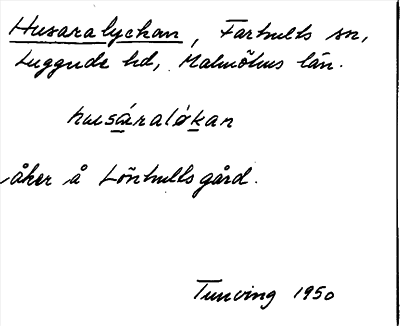 Husaralyckan, Farhults sn,
Luggude hd, Malmöhus län.
husáraløkan
åker å Lönhults gård.
Tunving 1950